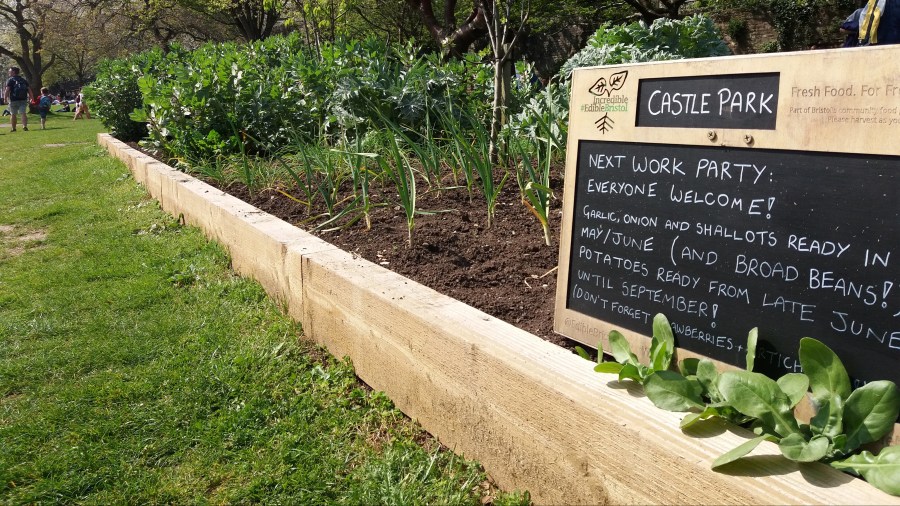 Incredible
#EdibleBristol
CASTLE PARK
Fresh Food. For Fr
Part of Bristol's community food
Please harvest as yo
NEXT WORK PARTY:
EVERYONE WELCOME!
GARLIC, ONION AND SHALLOTS READY IN
MAY/JUNE (AND BROAD BEANS!)
POTATOES READY FROM LATE JUNE
UNTIL SEPTEMBER!
(DON'T FORGET